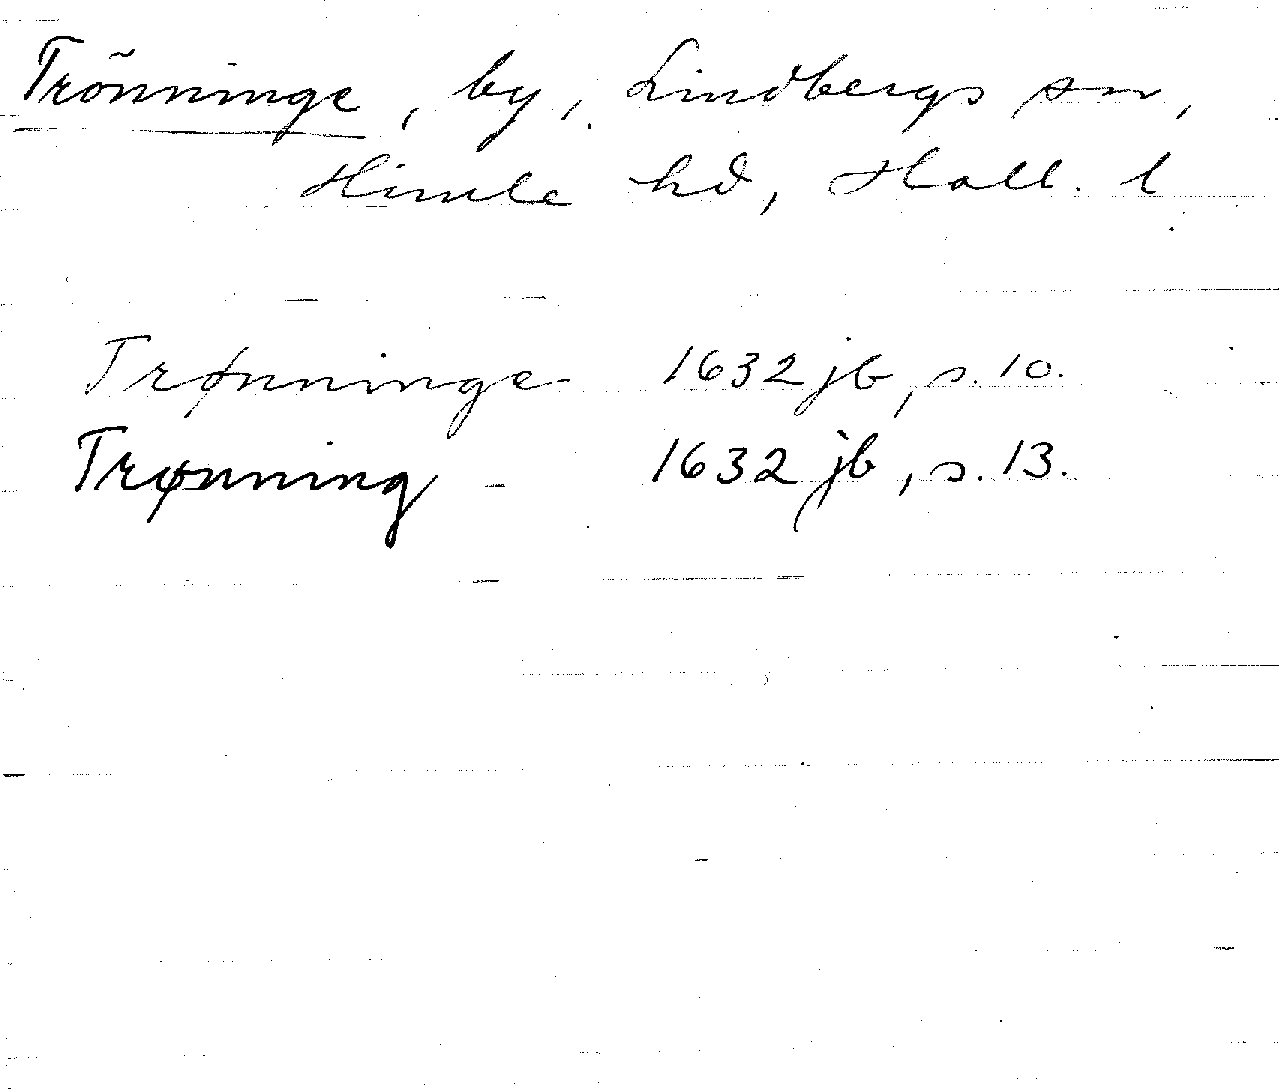 Trönninge, by, Lindbergs sn,
Himle hd, Hall. l
Trønninge 1632 jb, s. 10.
Trønning - 1632 jb, s. 13.